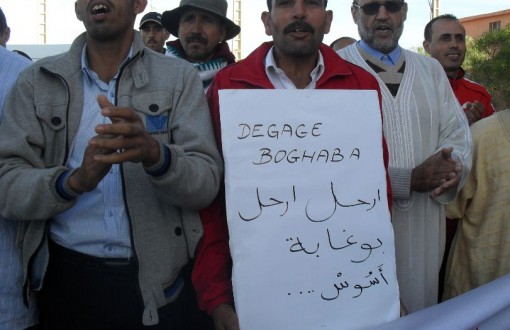 DEGAGE
BOGHABA
ارحل ارحل
بوغابة
أَسُّوسْ ...